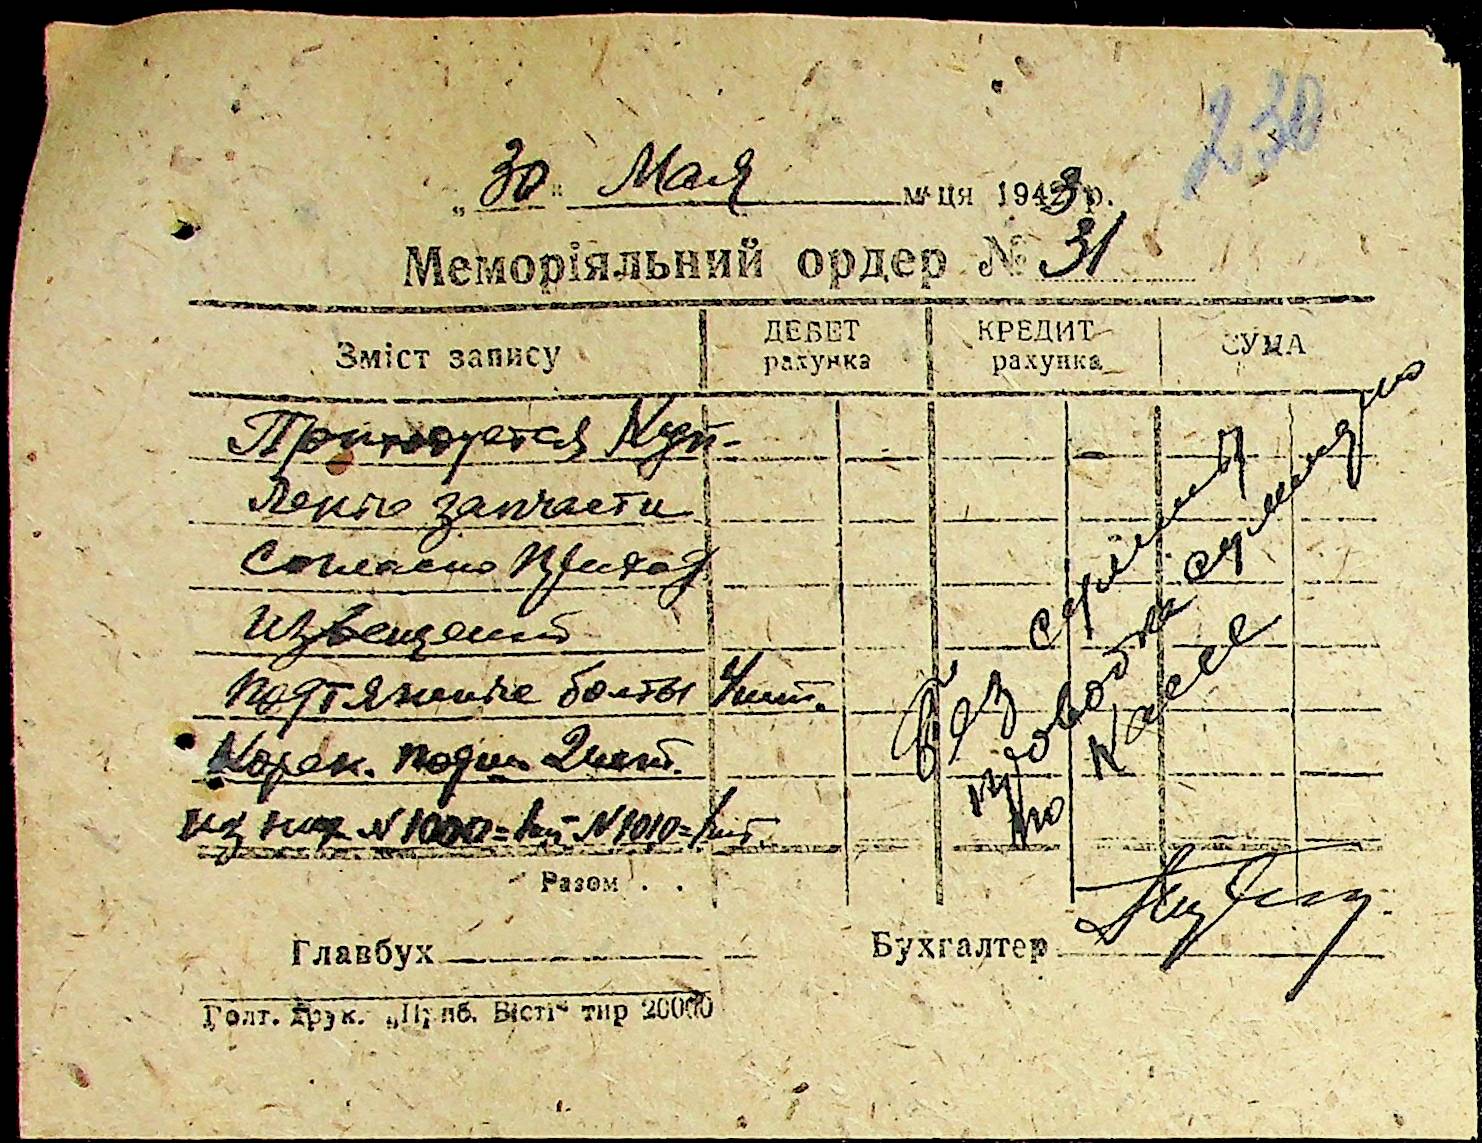 230
„30“ Мая м-ця 1943 р.
Меморіяльний ордер № 31
Зміст запису
ДЕБЕТ рахунка
КРЕДИТ рахунка
СУМА
запчасти
Согласно приход
извещения
Подтяжние болты 4 шт.
Корен. подш 2 шт.
из них № 1000 = 1 шт № 1010 = 1 шт.
Без суммы
проводка
по Кассе
Разом . .
Главбух
Бухгалтер
Голт. друк. „Приб. Вісті“ тир 20000